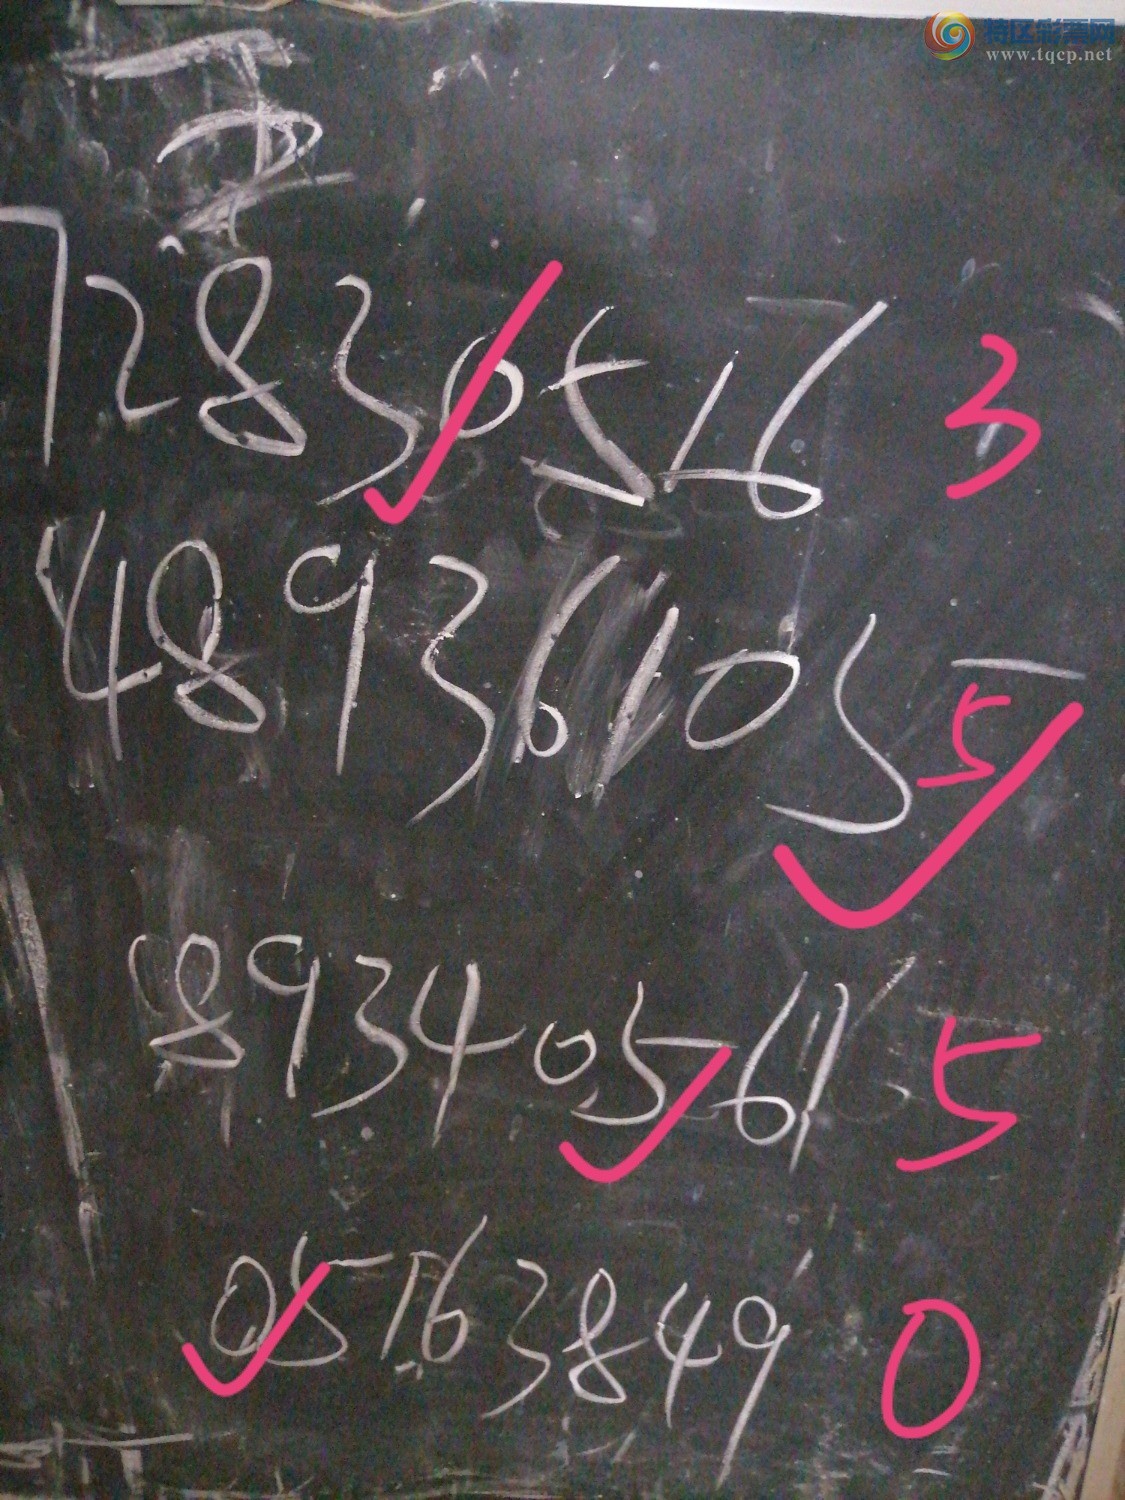 特区彩票网
www.tqcp.net
72830516 3
48936105 5
89340561 5
05163849 0